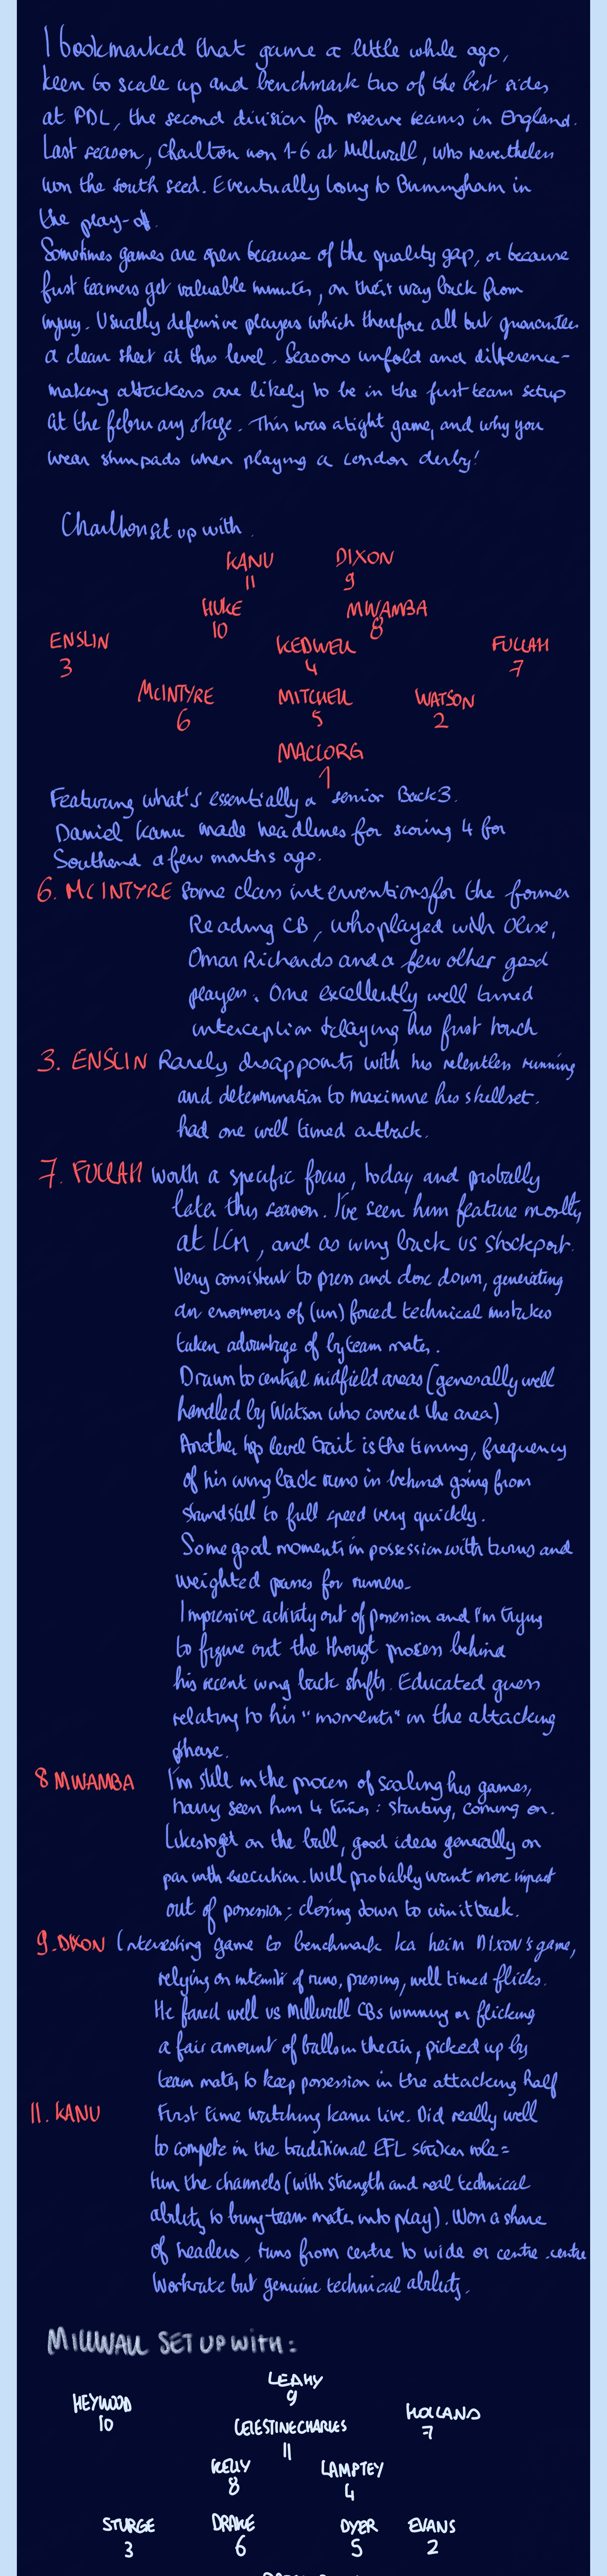 I bookmarked that game a little while ago,
keen to scale up and benchmark two of the best sides
at PDL, the second division for reserve teams in England.
Last season, Charlton won 1-6 at Millwall, who nevertheless
won the south seed. Eventually losing to Birmingham in
the play-off.
Sometimes games are open because of the quality gap, or because
first teamers get valuable minutes, on their way back from
injury. Usually defensive players which therefore all but guarantee
a clean sheet at this level. Seasons unfold and difference-
making attackers are likely to be in the first team setup
at the february stage. This was a tight game, and why you
wear shinpads when playing a London derby!
Charlton set up with.
KANU DIXON
11 9
HUKE MWAMBA
10 8
ENSLIN KEDWELL FULLAH
3 4 7
MCINTYRE MITCHELL WATSON
6 5 2
MACLORG
1
Featuring what's essentially a senior Back 3.
Daniel Kanu made headlines for scoring 4 for
Southend a few months ago.
6. MCINTYRE Some class interventions for the former
Reading CB, who played with Olise,
Omar Richards and a few other good
players. One excellently well timed
interception delaying his first touch
3. ENSLIN Rarely disappoints with his relentless running
and determination to maximise his skillset.
had one well timed cutback.
7. FULLAH worth a specific focus, today and probably
later this season. I've seen him feature mostly
at LCM, and as wing back vs Stockport.
Very consistent to press and close down, generating
an enormous of (un)forced technical mistakes
taken advantage of by team mates.
Drawn to central midfield areas (generally well
handled by Watson who covered the area)
Another top level trait is the timing, frequency
of his wing back runs in behind going from
standstill to full speed very quickly.
Some good moments in possession with turns and
weighted passes for runners-
Impressive activity out of possession and I'm trying
to figure out the thought process behind
his recent wing back shifts. Educated guess
relating to his "moments" in the attacking
phase.
8 MWAMBA I'm still in the process of scaling his games,
having seen him 4 times: starting, coming on.
Likes to get on the ball, good ideas generally on
par with execution. Will probably want more impact
out of possession; closing down to win it back.
9. DIXON Interesting game to benchmark Kaheim Dixon's game,
relying on intensity of runs, pressing, well timed flicks.
He fared well vs Millwall CBs winning or flicking
a fair amount of balls in the air, picked up by
team mates to keep possession in the attacking half
11. KANU First time watching Kanu live. Did really well
to compete in the traditional EFL striker role =
run the channels (with strength and real technical
ability to bring team mates into play). Won a share
of headers, runs from centre to wide or centre-centre
Workrate but genuine technical ability.
MILLWALL SET UP WITH :
LEAHY
9
HEYWOOD HOLLANDS
10 7
CELESTINE CHARLES
11
KELLY LAMPTEY
8 4
STURGE DRAKE DYER EVANS
3 6 5 2